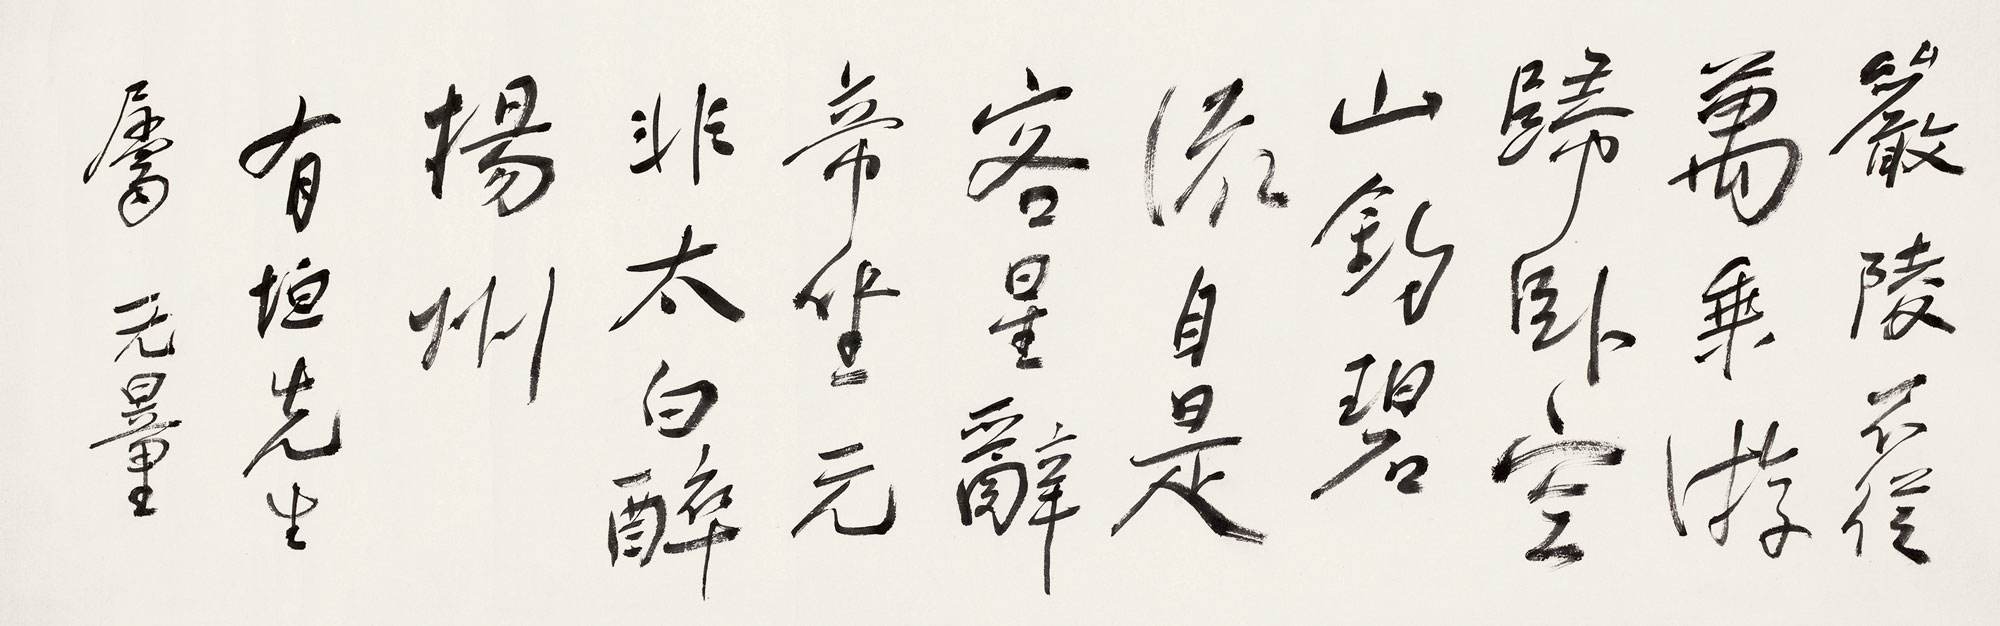 嚴陵不從
萬乘游
歸卧空
山釣碧
流自是
客星辭
帝坐元
非太白醉
揚州
有垣先生
屬 无量